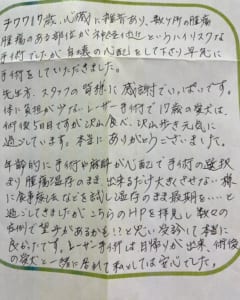 チワワ17歳、心臓に雑音あり、数ヶ所の腫瘍
腫瘍のある部位が神経付近というハイリスクな
手術でしたが自壊の心配をして下さり早急に
手術をしていただきました。
先生方、スタッフの皆様に感謝でいっぱいです。
体に負担が少ないレーザー手術で17歳の愛犬は、
術後5日目ですが沢山食べ、沢山歩き元気に
過ごしています。本当にありがとうございました。
年齢的に手術や麻酔が心配で手術の選択
より腫瘍温存のまま、出来るだけ大きくさせない様
に食事療法などを試し温存のまま最期を…と
過ごしてきましたが、こちらのHPを拝見し数々の
症例で望みがあるかも!?と思い受診して本当に
良かったです。レーザー手術は日帰りが出来、術後
の愛犬と一緒に居れて私としては安心でした。